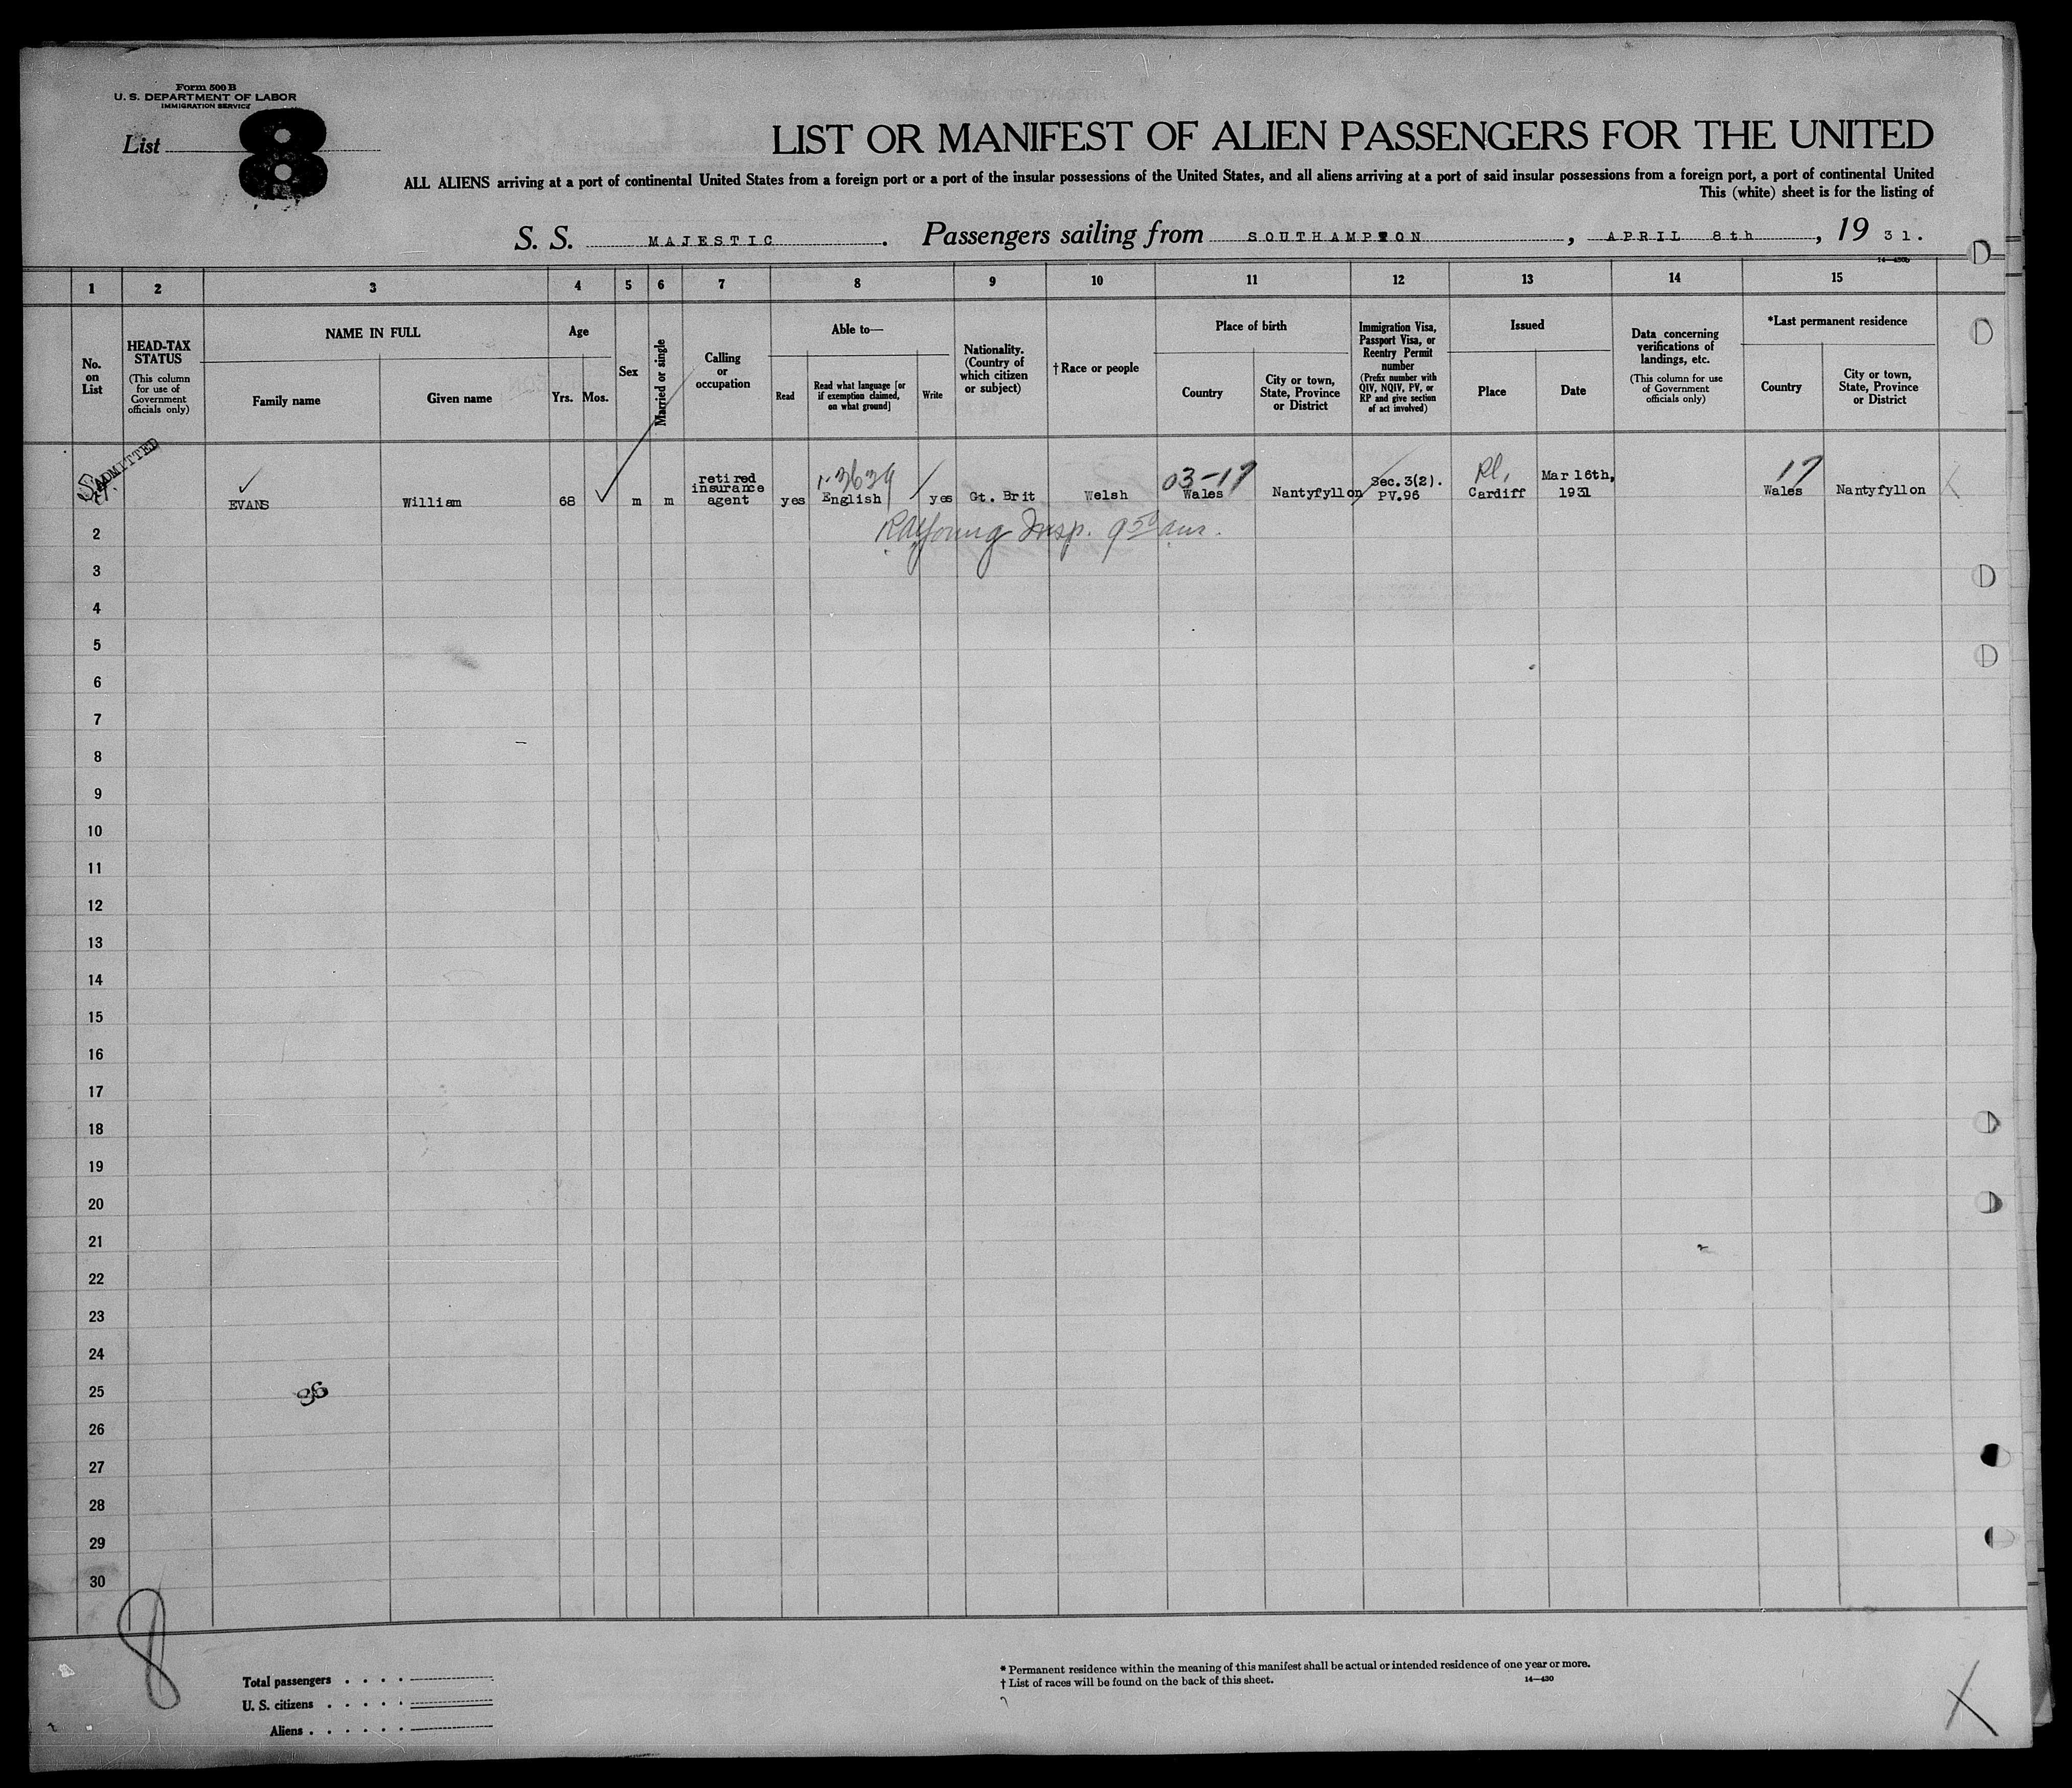 Form 500 B
U. S. DEPARTMENT OF LABOR
IMMIGRATION SERVICE
List 8
LIST OR MANIFEST OF ALIEN PASSENGERS FOR THE UNITED
ALL ALIENS arriving at a port of continental United States from a foreign port or a port of the insular possessions of the United States, and all aliens arriving at a port of said insular possessions from a foreign port, a port of continental United
This (white) sheet is for the listing of
S. S. MAJESTIC. Passengers sailing from SOUTHAMPTON, APRIL 8th, 19 31.
1 2 3 4 5 6 7 8 9 10 11 12 13 14 15
No. on List
HEAD-TAX STATUS
(This column for use of Government officials only)
NAME IN FULL
Family name
Given name
Age
Yrs. Mos.
Sex
Married or single
Calling or occupation
Able to—
Read
Read what language [or if exemption claimed, on what ground]
Write
Nationality. (Country of which citizen or subject)
† Race or people
Place of birth
Country
City or town, State, Province or District
Immigration Visa, Passport Visa, or Reentry Permit number
(Prefix number with QIV, NQIV, PV, or RP and give section of act involved)
Issued
Place
Date
Data concerning verifications of landings, etc.
(This column for use of Government officials only)
*Last permanent residence
Country
City or town, State, Province or District
ADMITTED
EVANS William 68 m m retired insurance agent yes English yes Gt. Brit Welsh Wales Nantyfyllon Sec.3(2). PV.96 Cardiff Mar 16th, 1931 Wales Nantyfyllon
1-3639
03-17
17
Young Insp.
2
3
4
5
6
7
8
9
10
11
12
13
14
15
16
17
18
19
20
21
22
23
24
25
26
27
28
29
30
8
Total passengers . . . .
U. S. citizens . . . . .
Aliens . . . . . .
* Permanent residence within the meaning of this manifest shall be actual or intended residence of one year or more.
† List of races will be found on the back of this sheet.
14—430